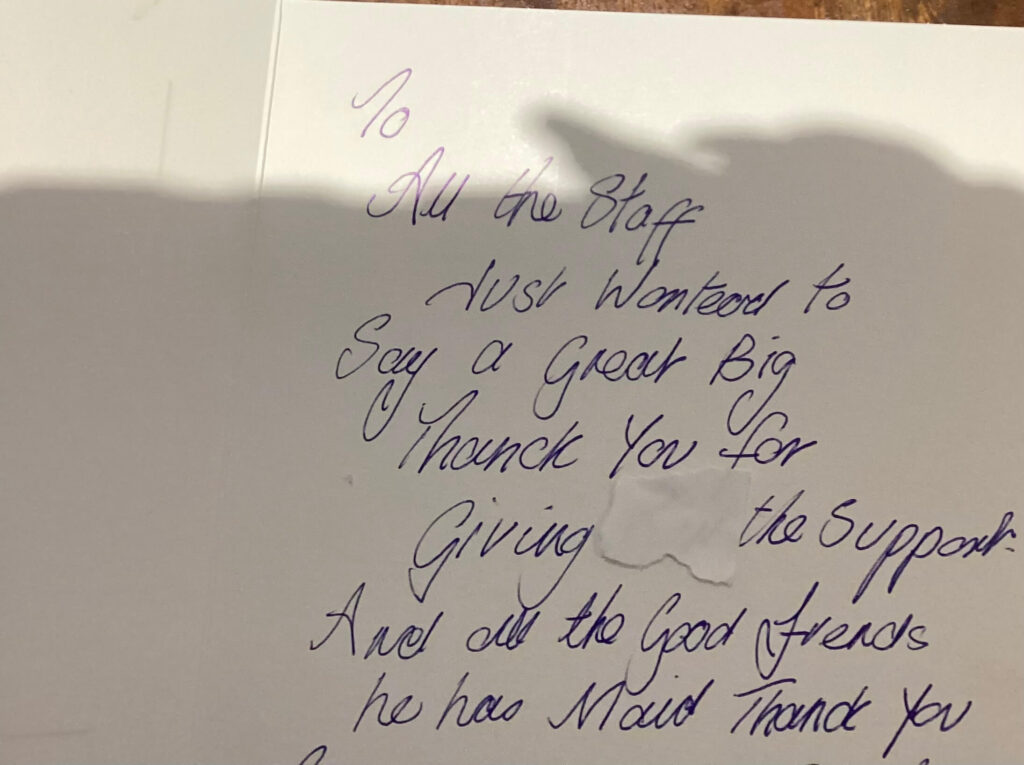 To
All the Staff
Just Wanteed to
Say a Great Big
Thanck You for
Giving the Support.
And all the Good frends
he has Maid Thanck You